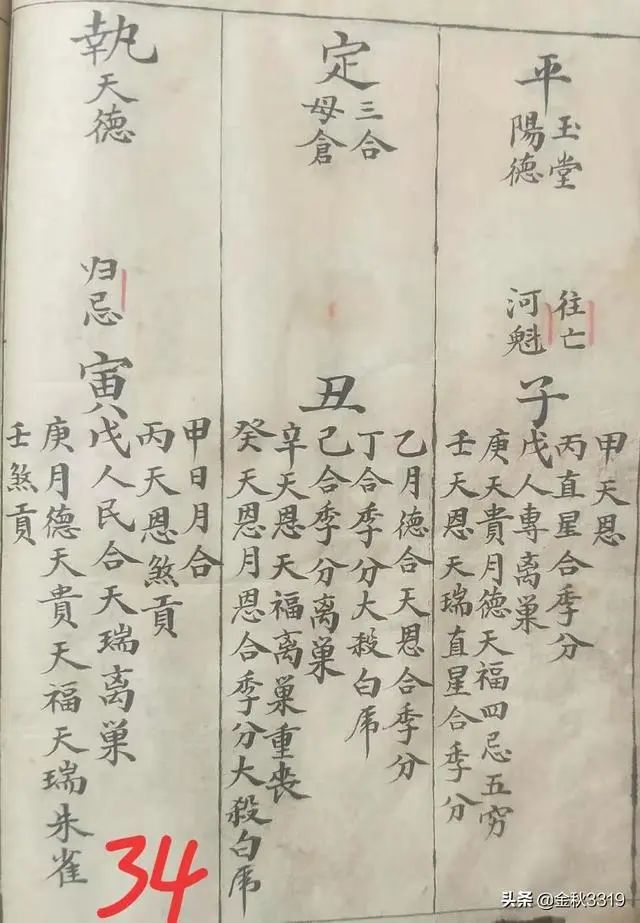 平
玉堂
陽德
往亡
河魁
子
甲天恩
丙直星合季分
戊人專离巢
庚天貴月德天福四忌五穷
壬天恩天瑞直星合季分
定
三合
母倉
丑
乙月德合天恩合季分
丁合季分大殺白虎
己合季分离巢
辛天恩天福离巢重丧
癸天恩月恩合季分大殺白虎
執
天德
归忌
寅
甲日月合
丙天恩煞貢
戊人民合天瑞离巢
庚月德天貴天福天瑞朱雀
壬煞貢
34
头条 @金秋3319